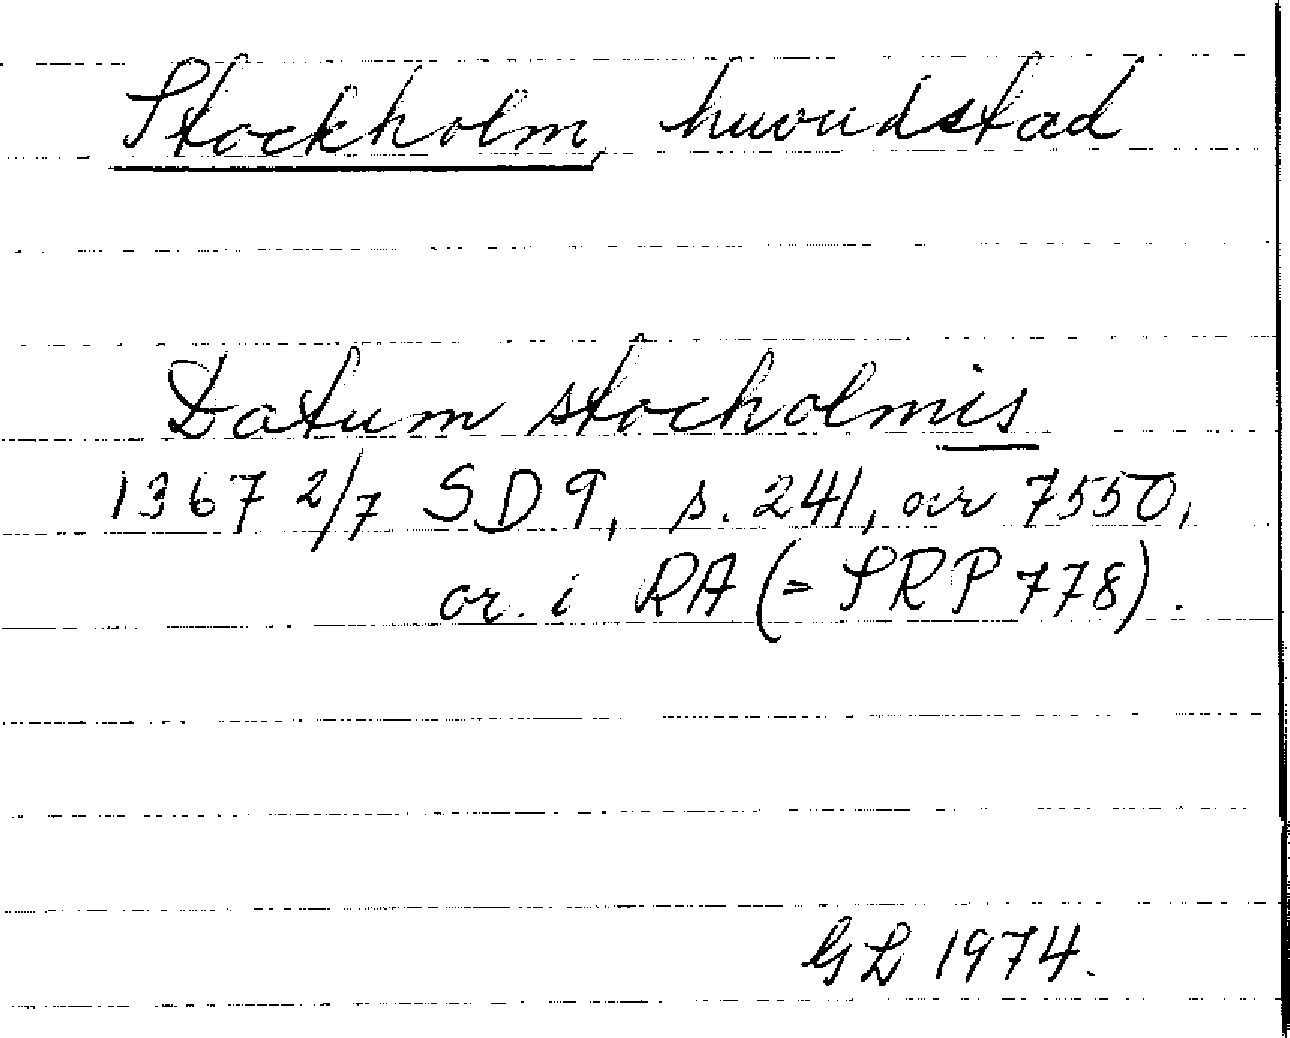 Stockholm, huvudstad
Datum stocholmis
1367 2/7 SD 9, s. 241, nr 7550,
or. i RA (= SRP 778).
GL 1974.